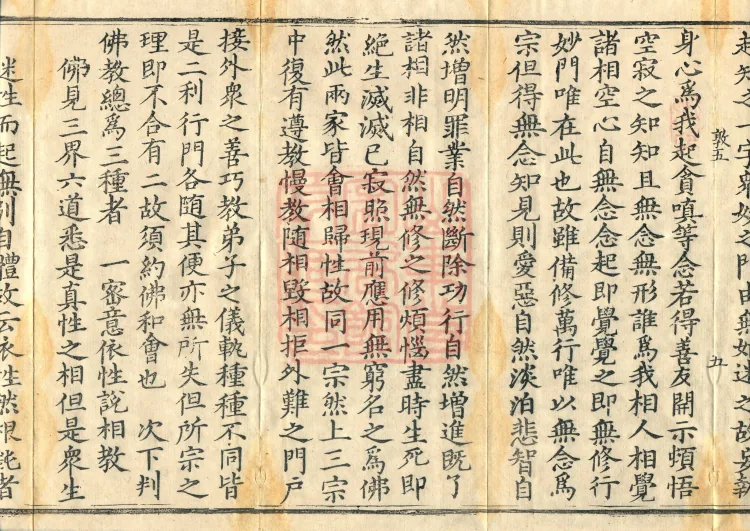 起知之一字衆妙之門由無始迷之故妄執
身心爲我起貪嗔等念若得善友開示頓悟
空寂之知知且無念無形誰爲我相人相覺
諸相空心自無念念起即覺覺之即無修行
妙門唯在此也故雖備修萬行唯以無念爲
宗但得無念知見則愛惡自然淡泊悲智自
敦五
五
然增明罪業自然斷除功行自然增進旣了
諸相非相自然無修之修煩惱盡時生死即
絶生滅滅已寂照現前應用無窮名之爲佛
然此兩家皆會相歸性故同一宗然上三宗
中復有遵教慢教隨相毀相拒外難之門戶
接外衆之善巧教弟子之儀軌種種不同皆
是二利行門各隨其便亦無所失但所宗之
理即不合有二故須約佛和會也　次下判
佛教總爲三種者　一密意依性說相教
佛見三界六道悉是真性之相但是衆生
迷性而起無別自體故云依性然根鈍者